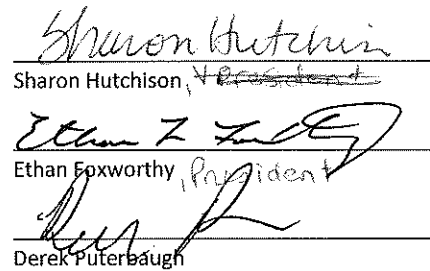 Sharon Hutchison
Sharon Hutchison, V President
Ethan Foxworthy, President
Derek Puterbaugh